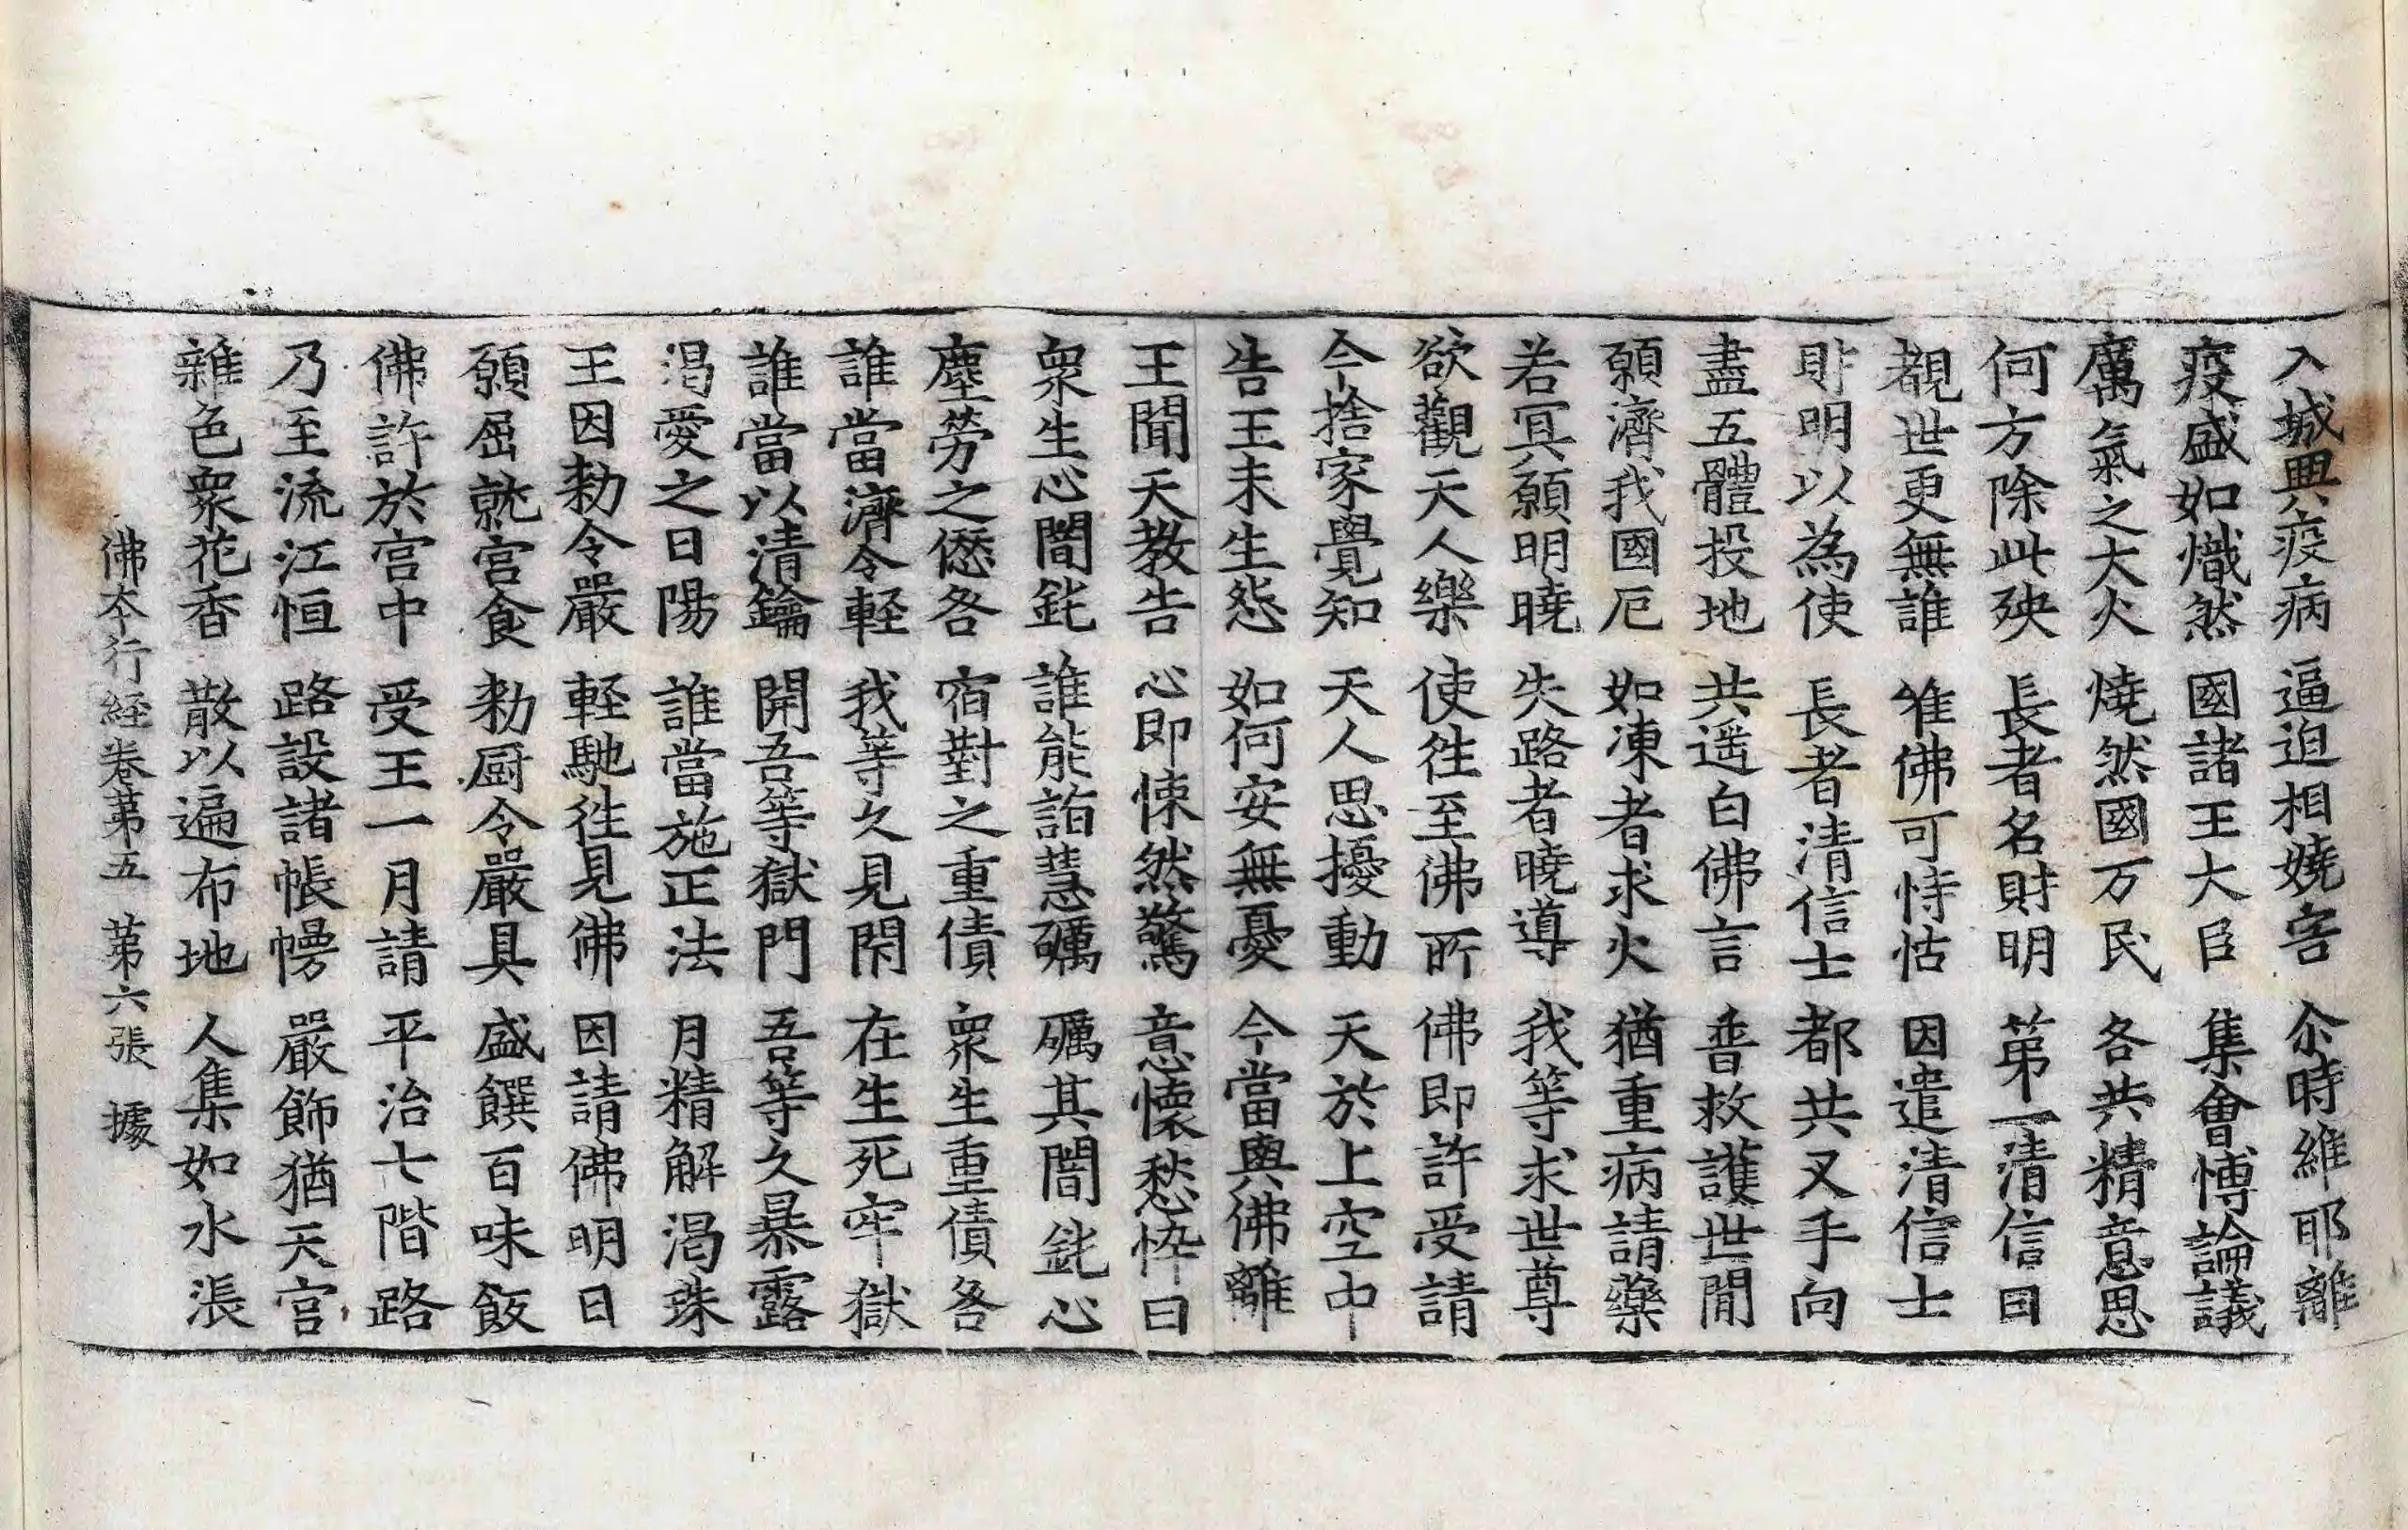 入城興疫病 逼迫相嬈害 尒時維耶離
疫盛如熾然 國諸王大臣 集會博論議
厲氣之大火 燒然國万民 各共精意思
何方除此殃 長者名財明 第一清信曰
覩世更無誰 唯佛可恃怙 因遣清信士
財明以為使 長者清信士 都共叉手向
盡五體投地 共遥白佛言 普救護世間
願濟我國厄 如凍者求火 猶重病請藥
若冥願明曉 失路者曉導 我等求世尊
欲觀天人樂 使往至佛所 佛即許受請
今捨家覺知 天人思擾動 天於上空中
告王未生怨 如何安無憂 今當與佛離
王聞天教告 心即悚然驚 意懷愁悴曰
衆生心闇鈍 誰能詣慧礪 礪其闇鈍心
塵勞之𠎝各 宿對之重債 衆生重債各
誰當濟令軽 我等久見閇 在生死牢獄
誰當以清鑰 開吾等獄門 吾等久暴露
渴愛之日陽 誰當施正法 月精解渴珠
王因勑令嚴 軽馳徃見佛 因請佛明日
願屈就宮食 勑厨令嚴具 盛饌百味飯
佛許於宮中 受王一月請 平治七階路
乃至流江恒 路設諸帳幔 嚴飾猶天宮
雜色衆花香 散以遍布地 人集如水漲
佛本行経卷第五 第六張 據